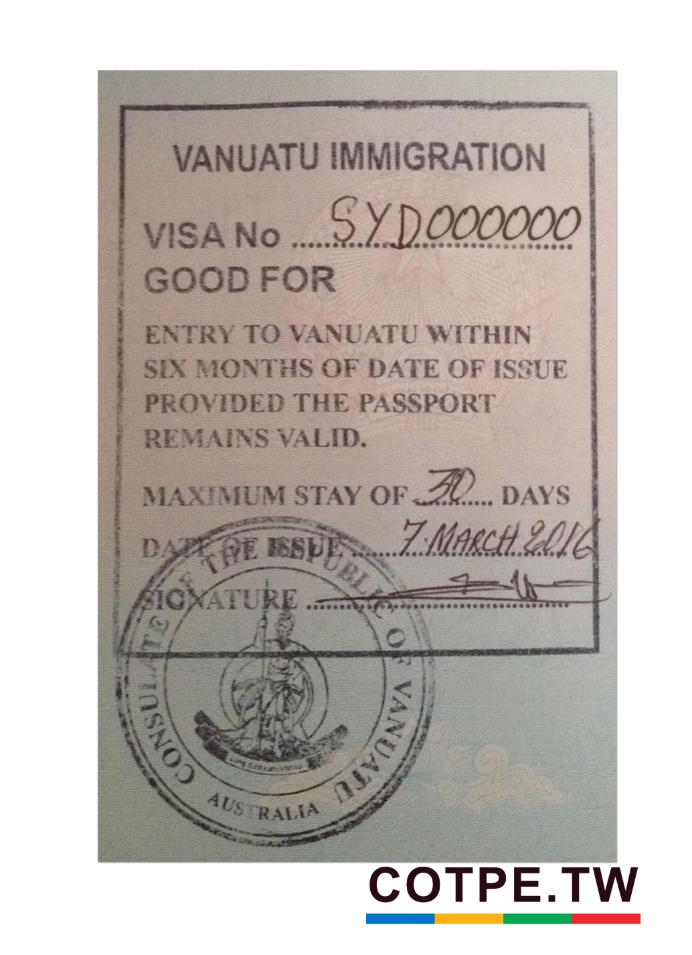 VANUATU IMMIGRATION
VISA No ....SYD000000
GOOD FOR
ENTRY TO VANUATU WITHIN
SIX MONTHS OF DATE OF ISSUE
PROVIDED THE PASSPORT
REMAINS VALID.
MAXIMUM STAY OF 30 DAYS
DATE OF ISSUE 7 MARCH 2016
SIGNATURE
CONSULATE OF THE REPUBLIC OF VANUATU
AUSTRALIA
COTPE.TW